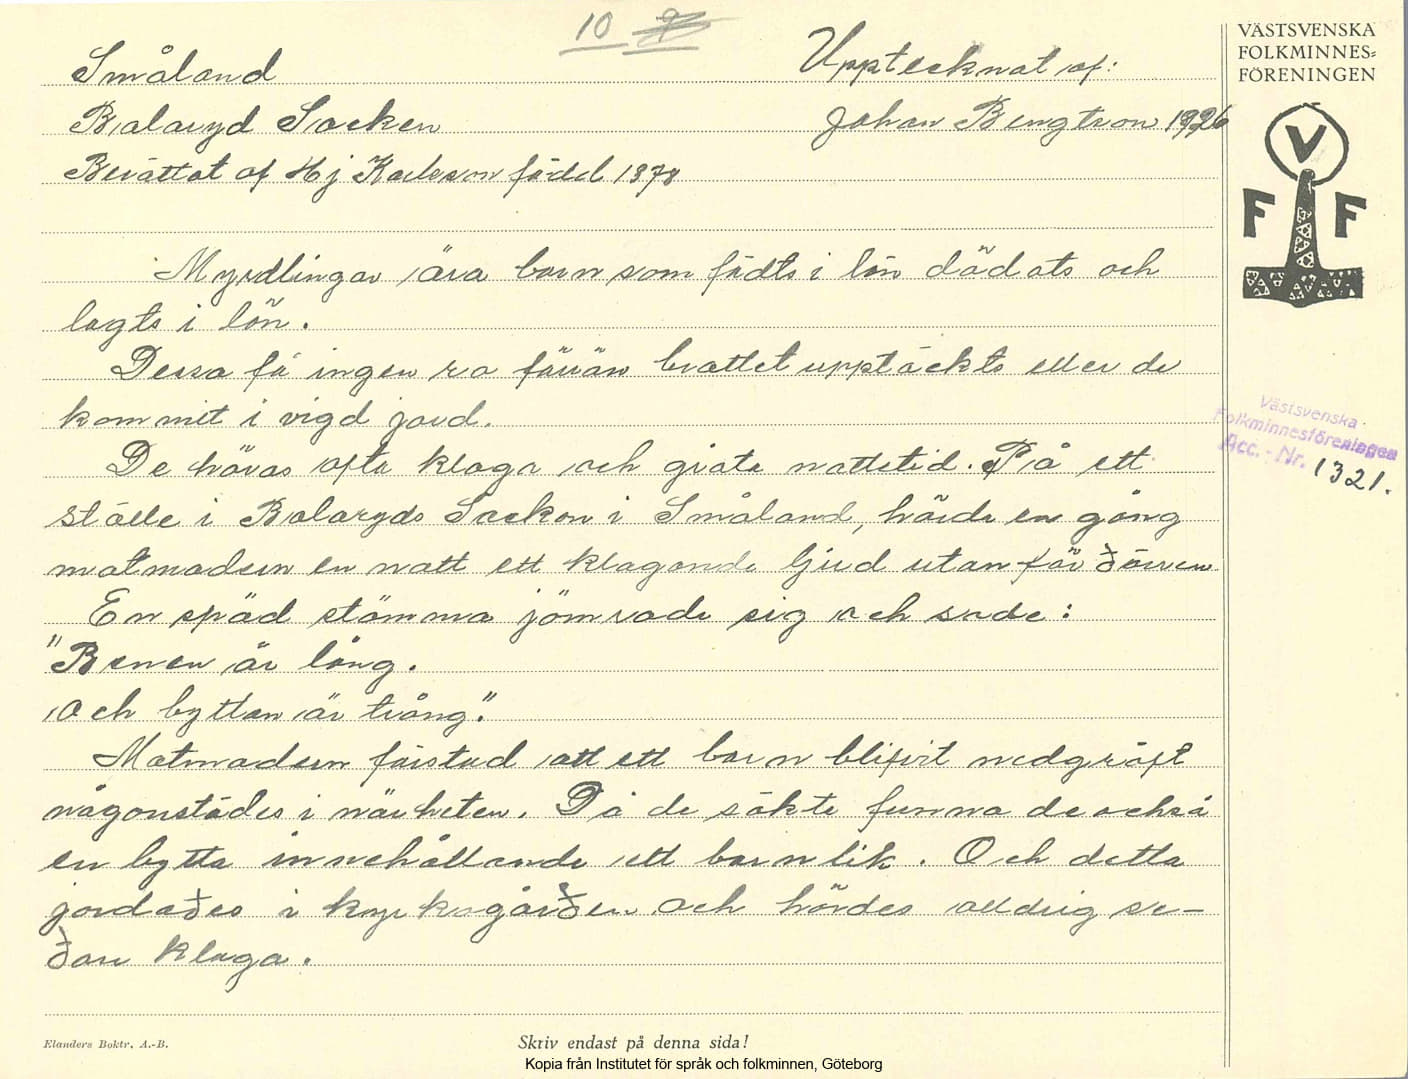 10
Småland
Upptecknat af:
Balaryd Socken
Johan Bengtson 1926
Berättat af Hj Karlsson född 1878
Myrdlingar ära barn som födts i lön dödats och
lagts i lön.
Dessa få ingen ro förrän brottet upptäckts eller de
kommit i vigd jord.
De höras ofta klaga och gråta nattetid. På ett
ställe i Balaryds Socken i Småland, hörde en gång
matmodern en natt ett klagande ljud utan för dörren
En späd stämma jömrade sig och sade:
"Benen är lång.
och byttan är trång".
Matmodern förstod att ett barn blifvit nedgräft
någonstädes i närheten. Då de sökte funno de också
en bytta innehållande ett barnlik. Och detta
jordades i kyrkogården och hördes alldrig se-
dan klaga.
VÄSTSVENSKA
FOLKMINNES=
FÖRENINGEN
V
F F
Västsvenska
Folkminnesföreningen
Acc.-Nr. 1321.
Elanders Boktr. A.-B.
Skriv endast på denna sida!
Kopia från Institutet för språk och folkminnen, Göteborg